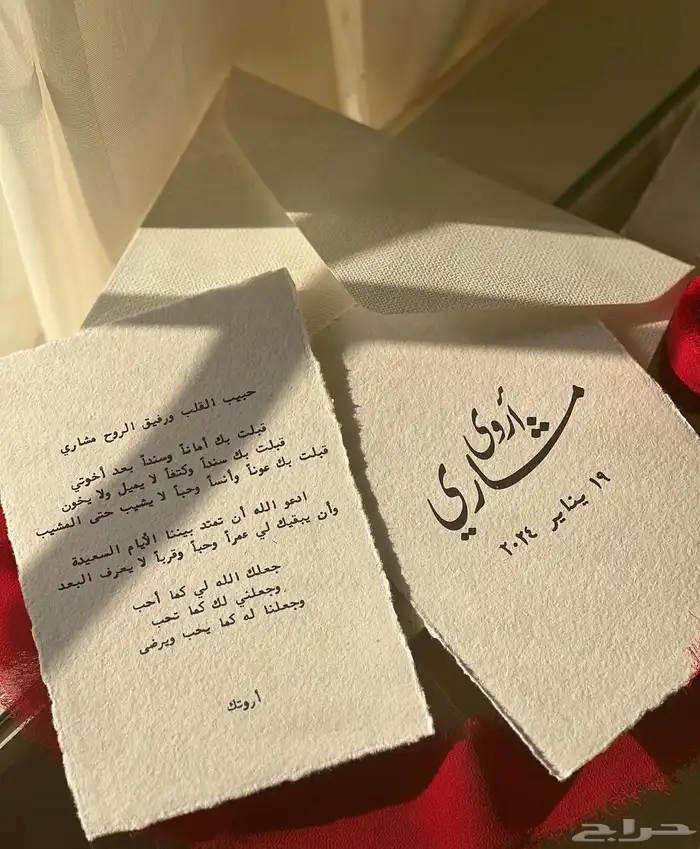 حبيب القلب ورفيق الروح مشاري
قبلت بك أماناً وسنداً بعد أخوتي
قبلت بك سنداً وكتفاً لا يميل ولا يخون
قبلت بك عوناً وأنساً وحباً لا يشيب حتى المشيب
ادعو الله أن تمتد بيننا الأيام السعيدة
وأن يبقيك لي عمراً وحباً وقرباً لا يعرف البعد
جعلك الله لي كما أحب
وجعلني لك كما تحب
وجعلنا له كما يحب ويرضى
أروتك
أروى
مشاري
١٩ يناير ٢٠٢٤
حراج